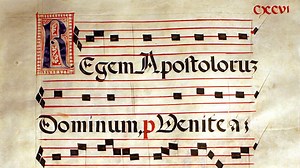 CXCVI
REgem Apostoloruz
Dominum, p Venite a: